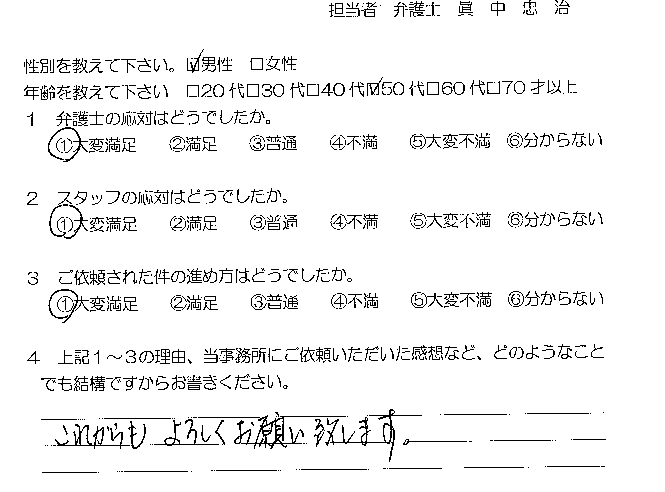 担当者 弁護士 眞 中 忠 治
性別を教えて下さい。☑男性 □女性
年齢を教えて下さい □20代□30代□40代☑50代□60代□70才以上
1 弁護士の応対はどうでしたか。
①大変満足 ②満足 ③普通 ④不満 ⑤大変不満 ⑥分からない
2 スタッフの応対はどうでしたか。
①大変満足 ②満足 ③普通 ④不満 ⑤大変不満 ⑥分からない
3 ご依頼された件の進め方はどうでしたか。
①大変満足 ②満足 ③普通 ④不満 ⑤大変不満 ⑥分からない
4 上記1～3の理由、当事務所にご依頼いただいた感想など、どのようなこと
でも結構ですからお書きください。
これからも よろしくお願い致します。